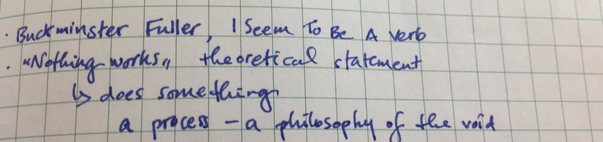 · Buckminster Fuller, I Seem To Be A Verb
· "Nothing works", theoretical statement
↳ does something
a process – a philosophy of the void